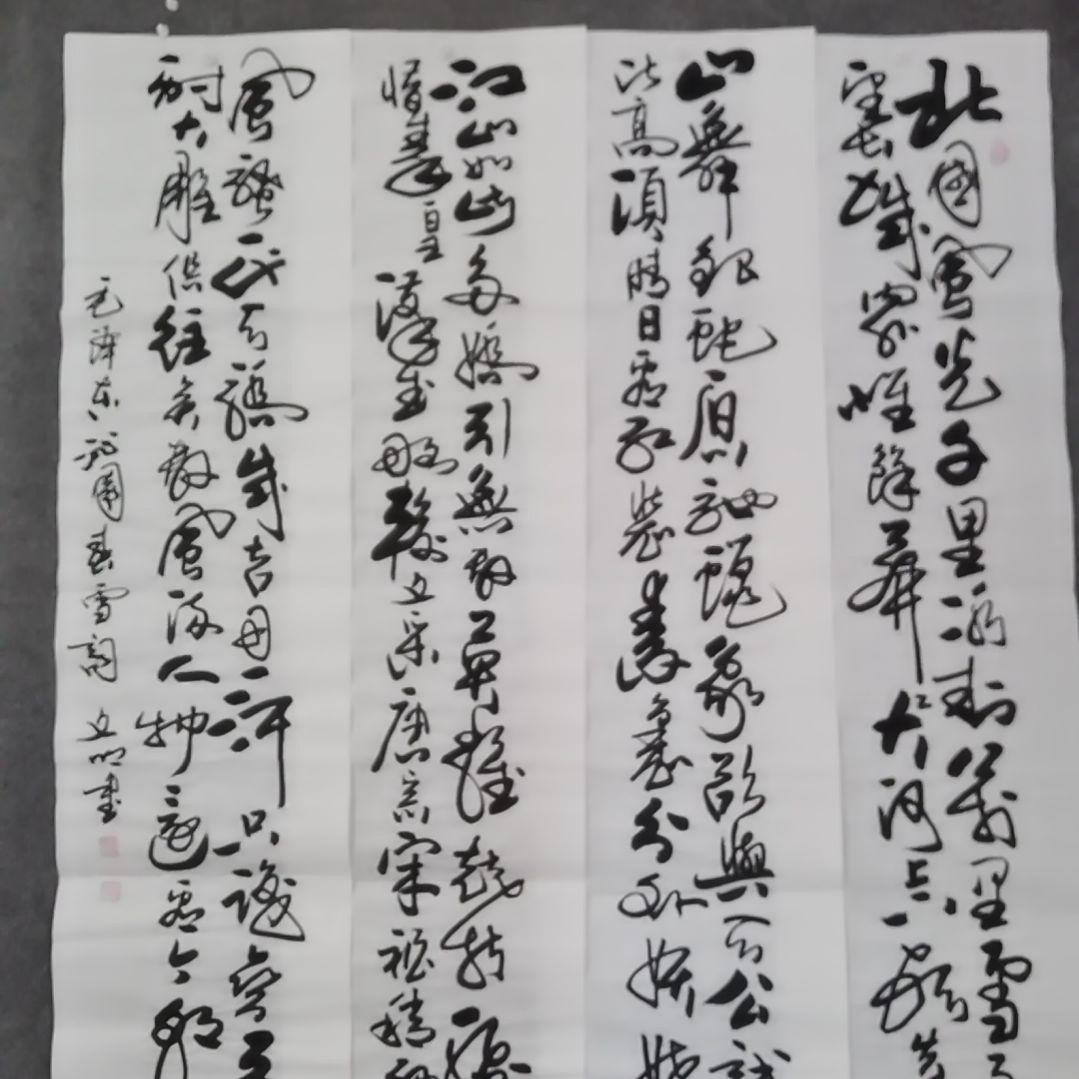 北國風光千里冰封萬里雪
望長城內外唯餘莽大河上下頓失
山舞銀蛇原馳蠟象欲與天公試
比高須晴日看紅裝素裹分外妖
江山如此多嬌引無數英雄競折腰
惜秦皇漢武略輸文采唐宗宋祖稍
風騷一代天驕成吉思汗只識彎
射大雕俱往矣數風流人物還看今朝
毛澤東沁園春雪詞 文明書